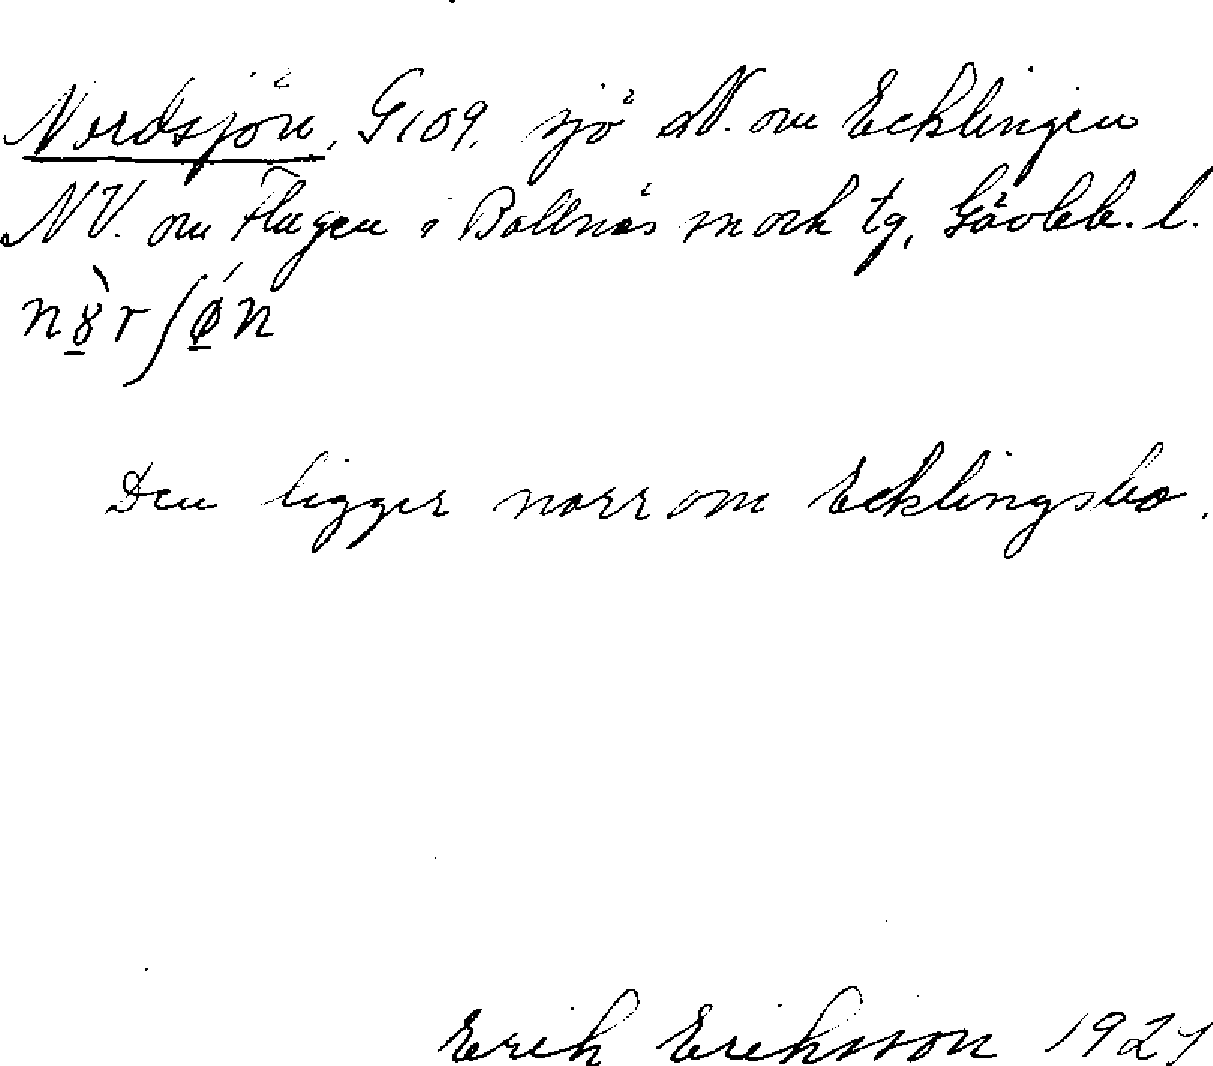 Nordsjön, G109. sjö N. om Ecklingen
NV. om Flugen i Bollnäs sn och tg, Gävleb. l.
Den ligger norr om Ecklingsbo.
Erik Eriksson 192